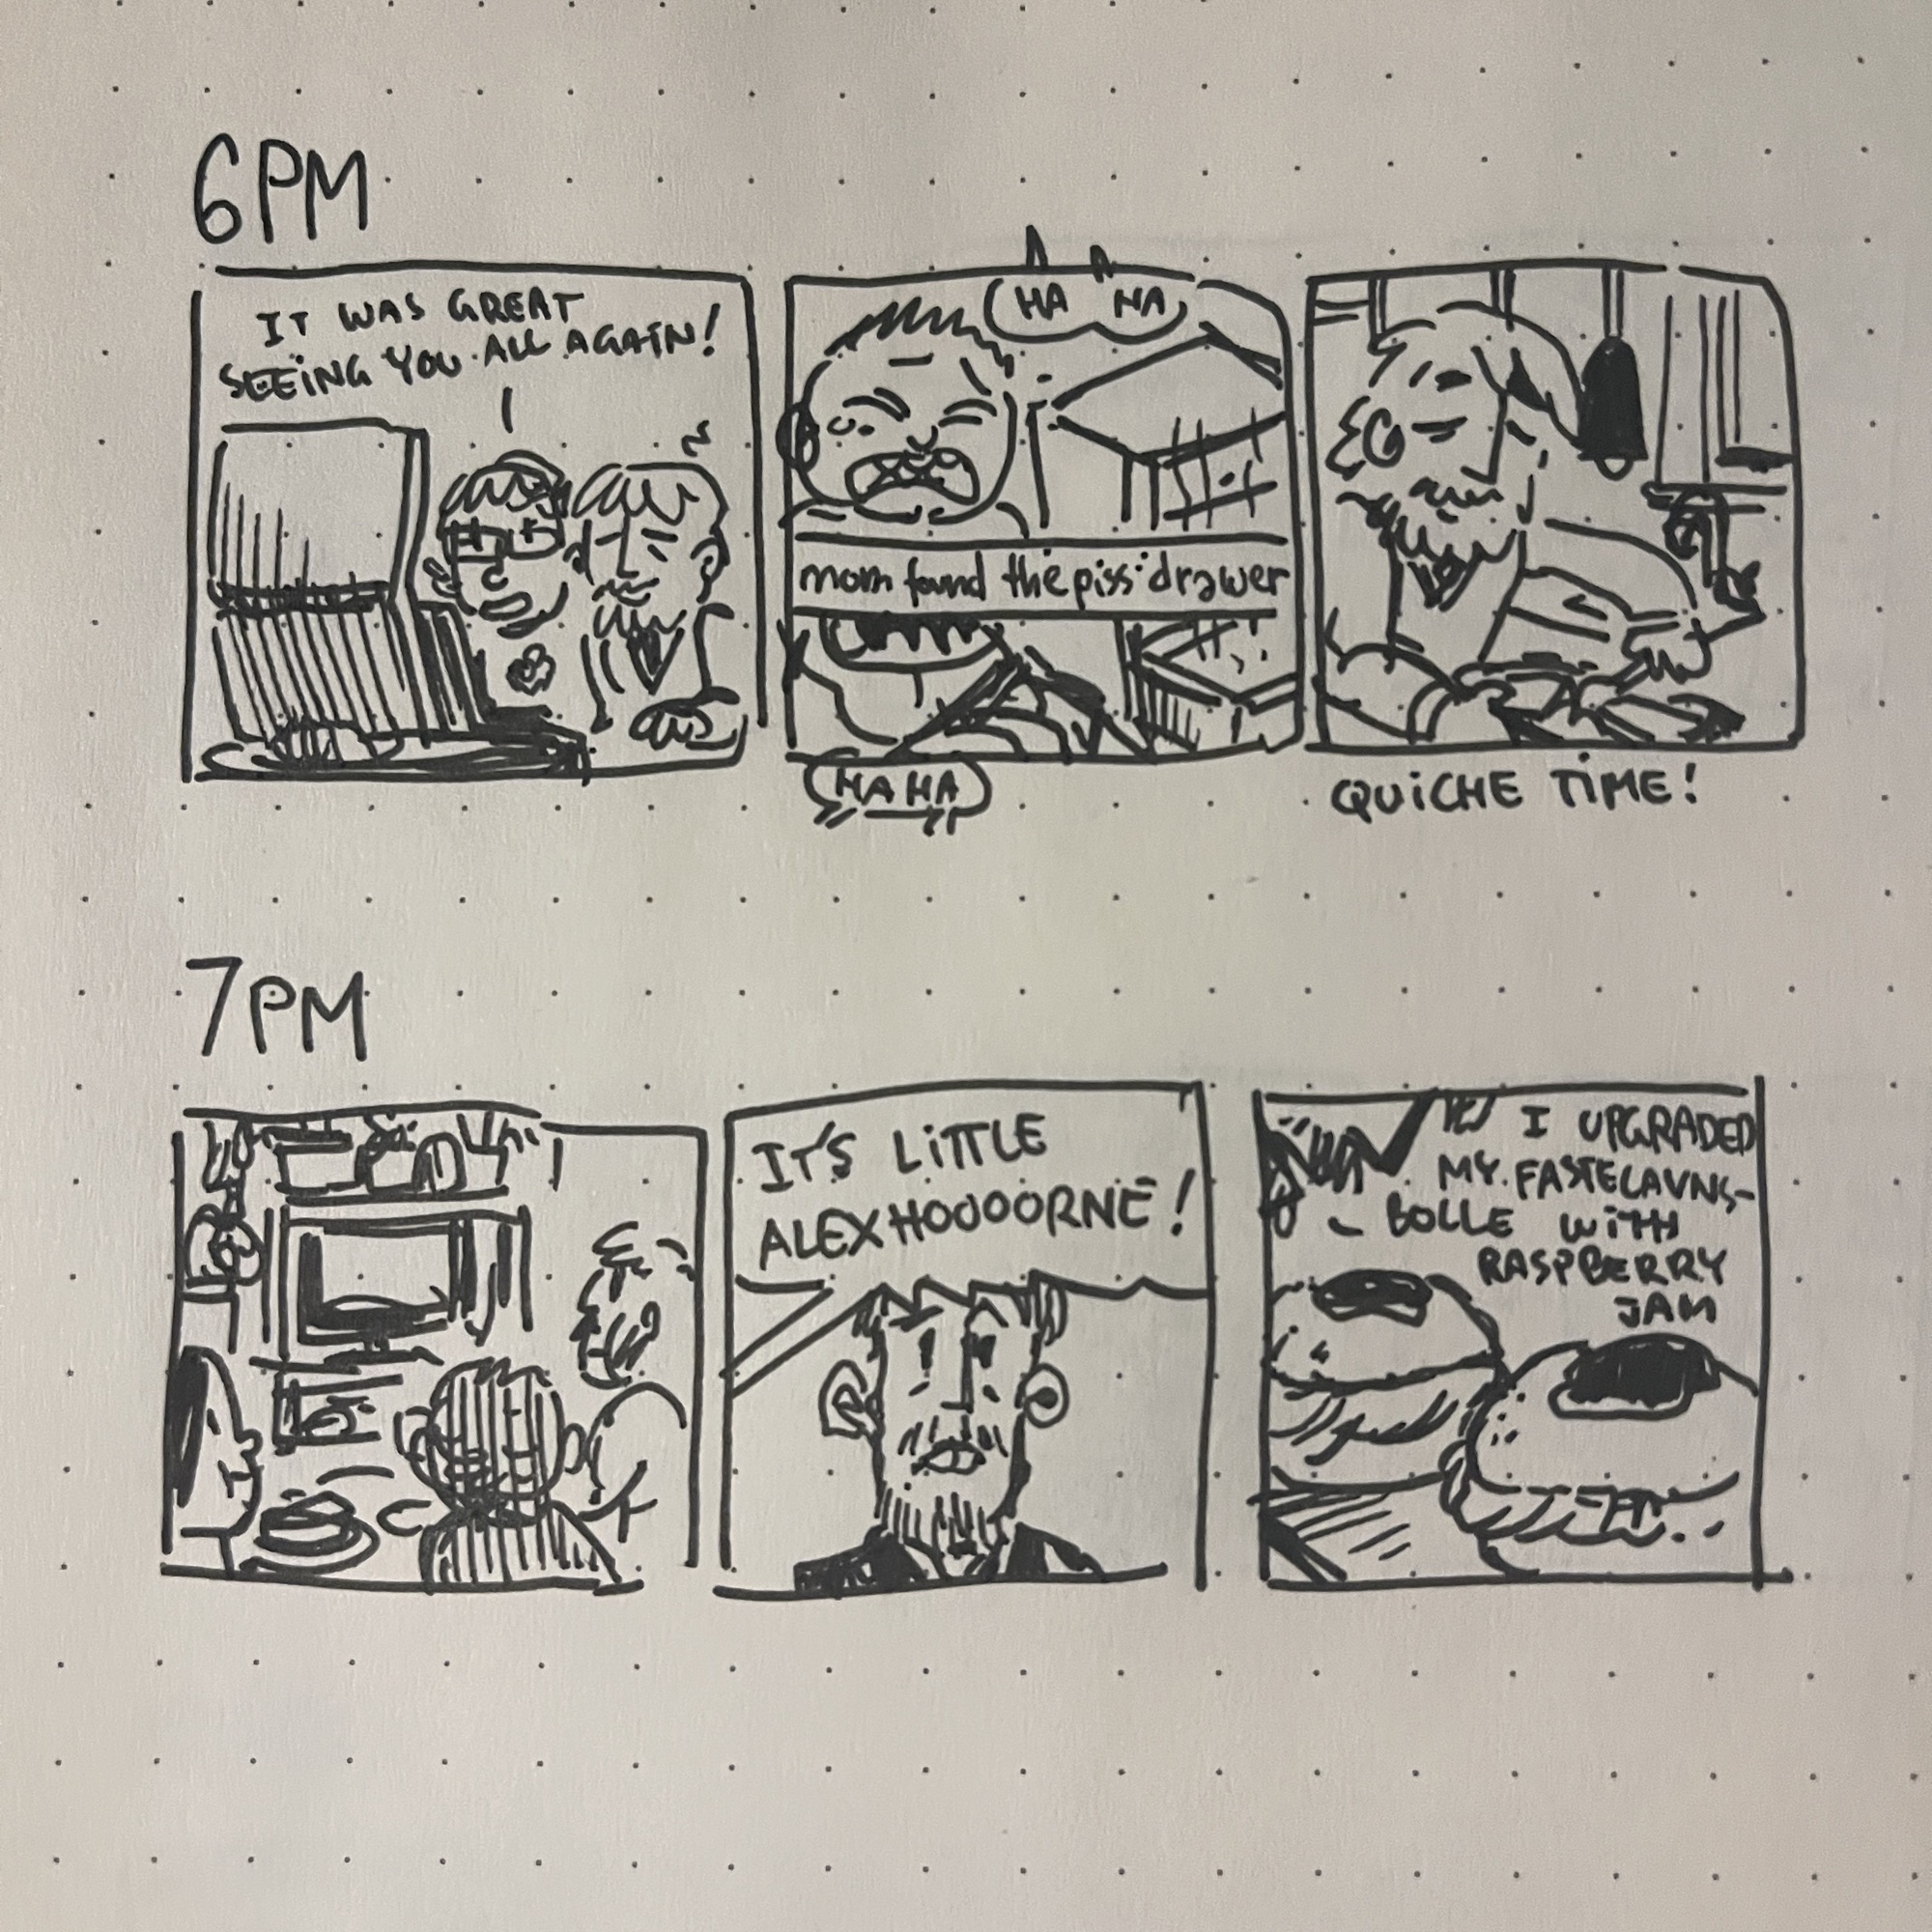 6PM
IT WAS GREAT
SEEING YOU ALL AGAIN!
HA HA
mom found the piss drawer
HA HA
QUICHE TIME!
7PM
IT'S LITTLE
ALEX HOOOORNE!
I UPGRADED
MY FASTELAVNS-
BOLLE WITH
RASPBERRY
JAM